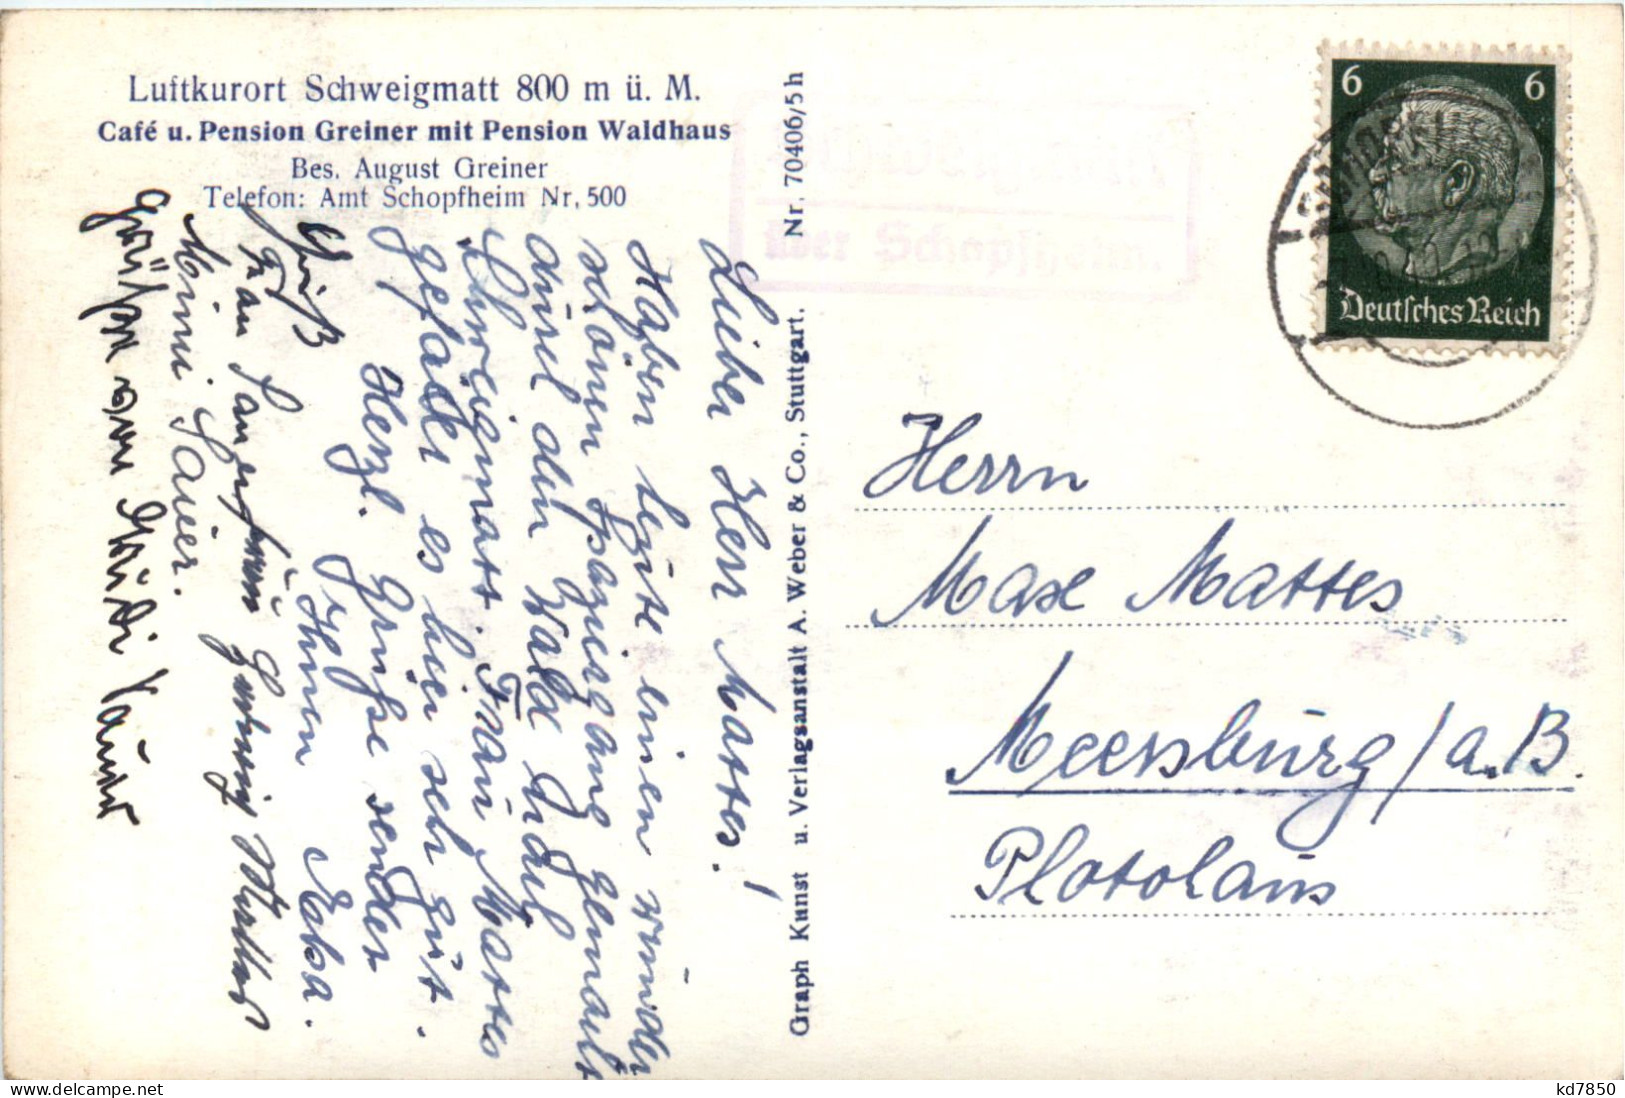 Luftkurort Schweigmatt 800 m ü. M.
Café u. Pension Greiner mit Pension Waldhaus
Bes. August Greiner
Telefon: Amt Schopfheim Nr. 500
Lieber Herr Mattes!
Haben heute einen wunder
schönen Spaziergang gemacht
durch den Wald nach
Schweigmatt. Frau Mattes
gefällt es hier sehr gut.
Herzl. Grüße sendet
Ihnen
Gruß
Frau
Mimi Sauer.
Graph Kunst u. Verlagsanstalt A. Weber & Co., Stuttgart. Nr. 70406/5h
Schweigmatt
über Schopfheim.
6 6
Deutsches Reich
Herrn
Max Mattes
Meersburg/a.B.